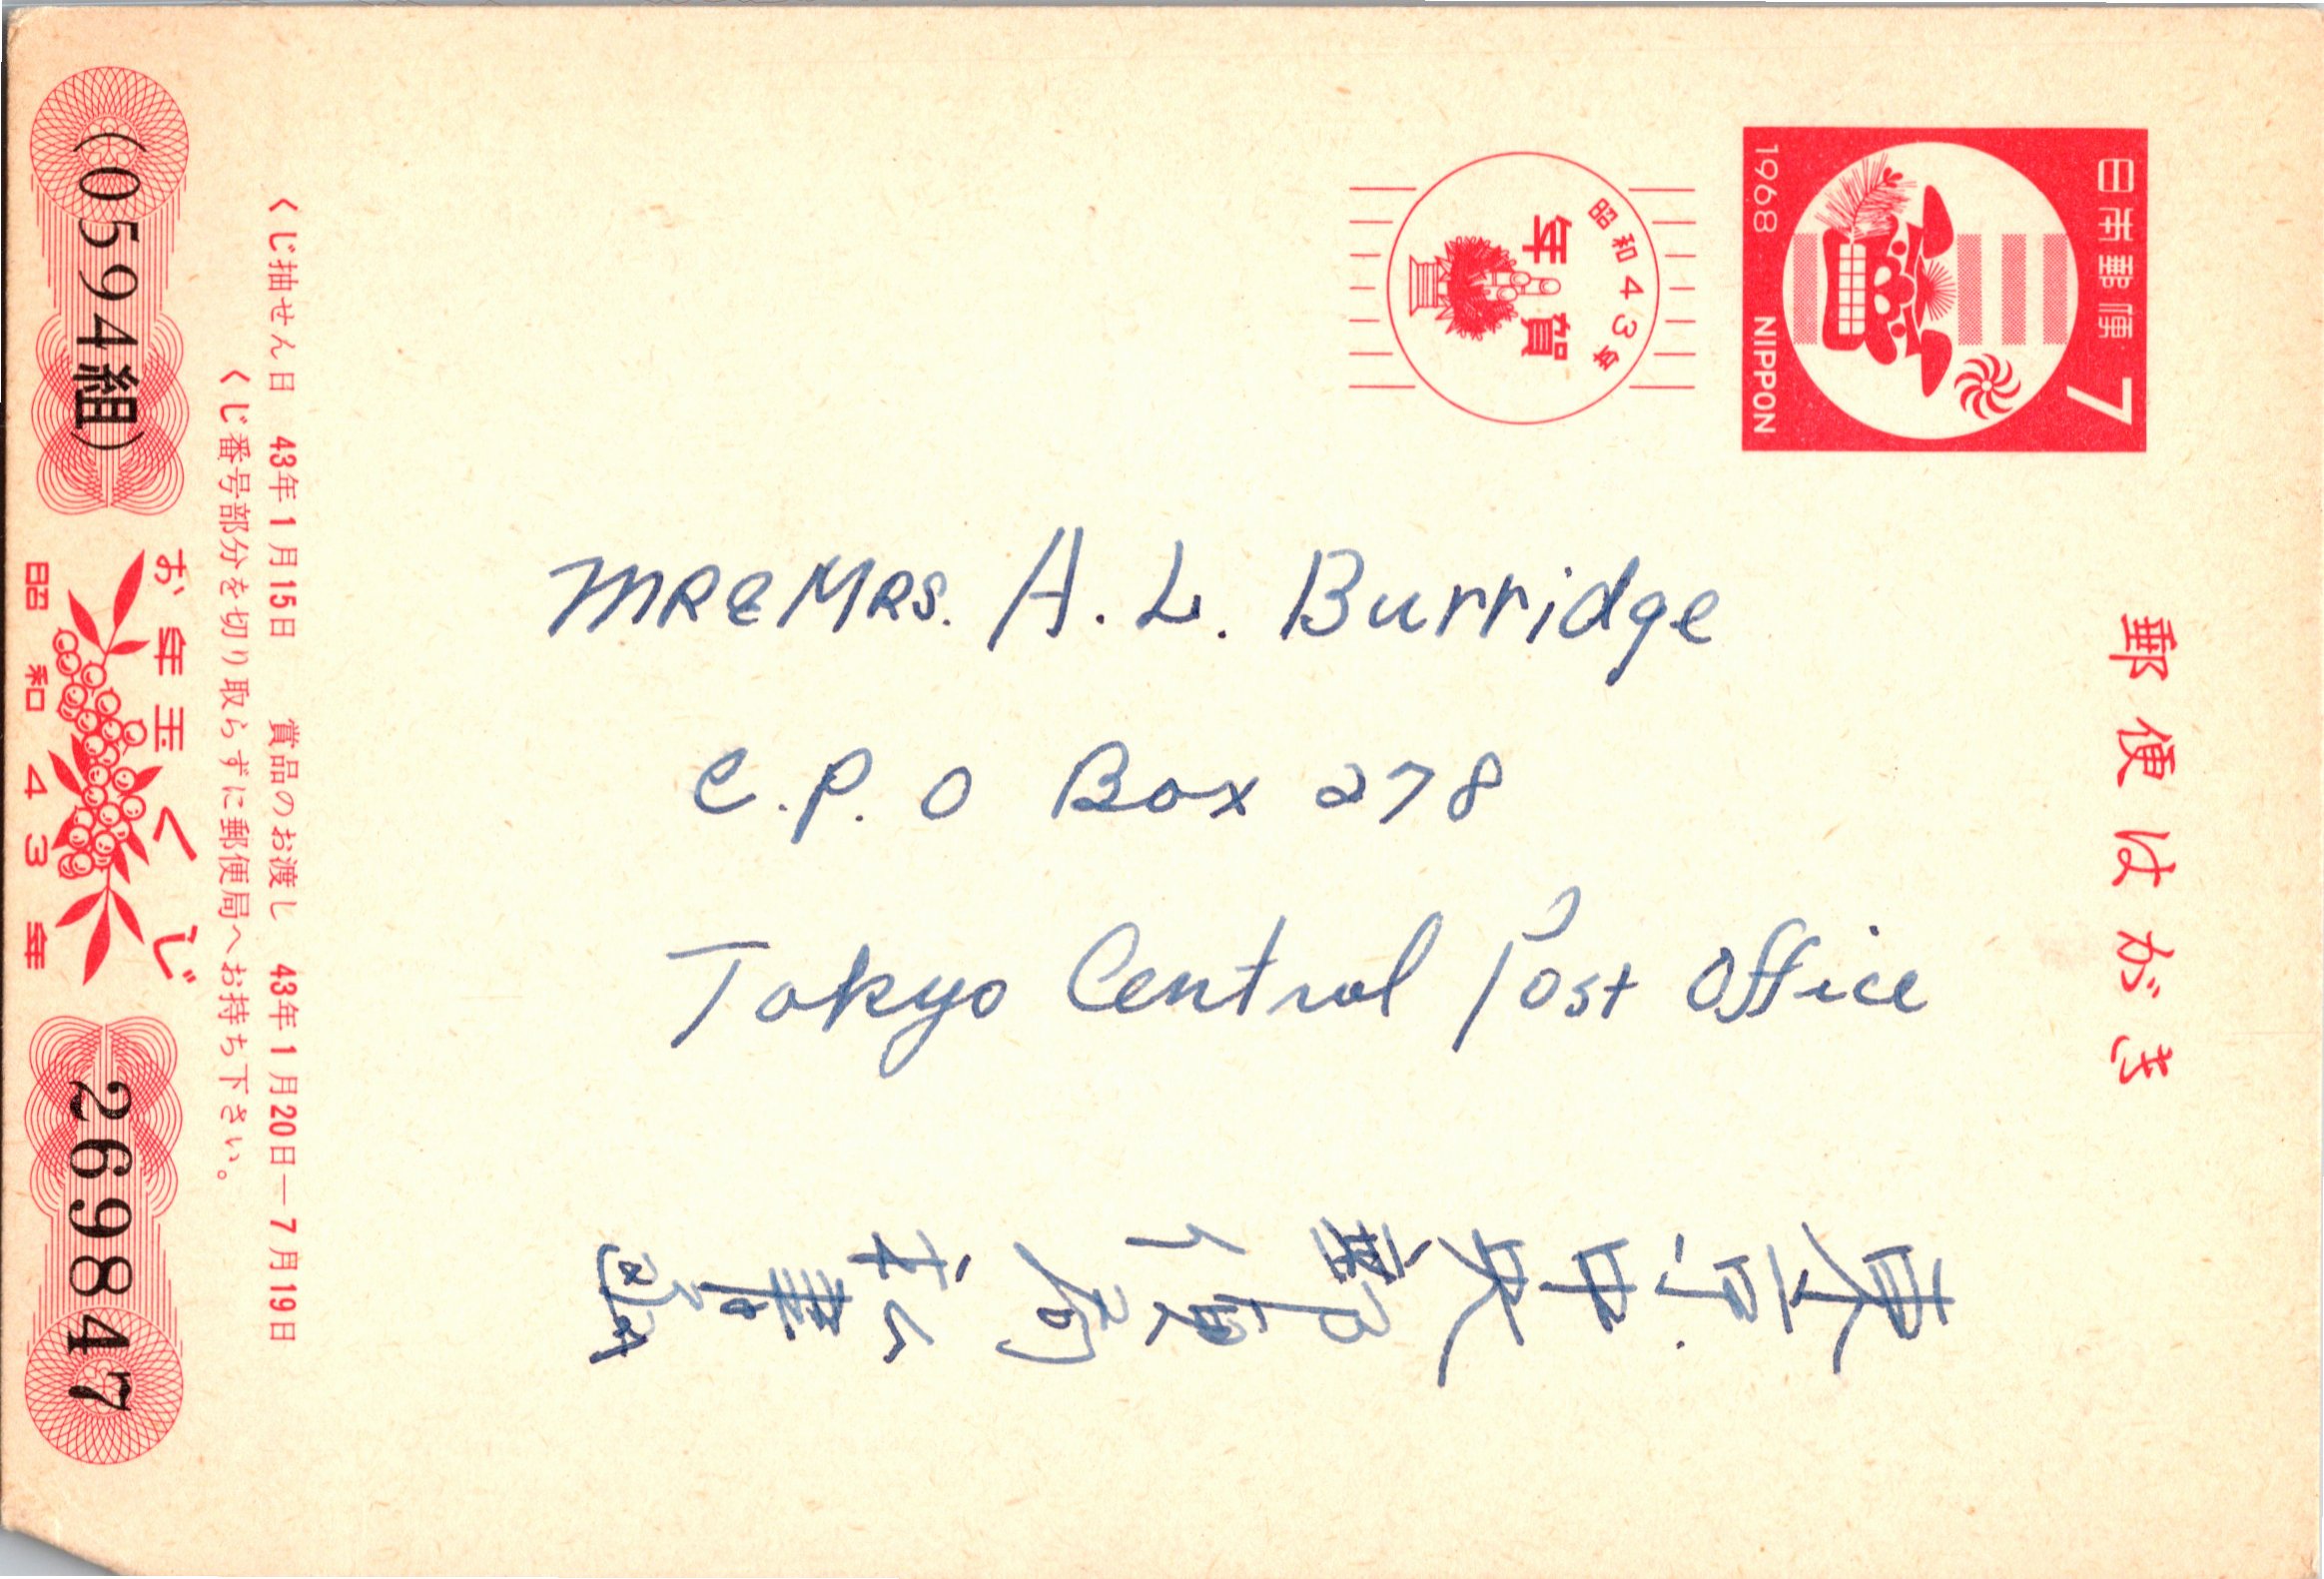 郵便はがき
日本郵便 7
1968 NIPPON
昭和43年
年賀
MR & MRS. A. L. Burridge
C.P.O Box 278
Tokyo Central Post Office
東京中央郵便局私書函
くじ抽せん日 43年1月15日 賞品のお渡し 43年1月20日—7月19日
くじ番号部分を切り取らずに郵便局へお持ち下さい。
(0594組)
お年玉くじ
昭和43年
269847